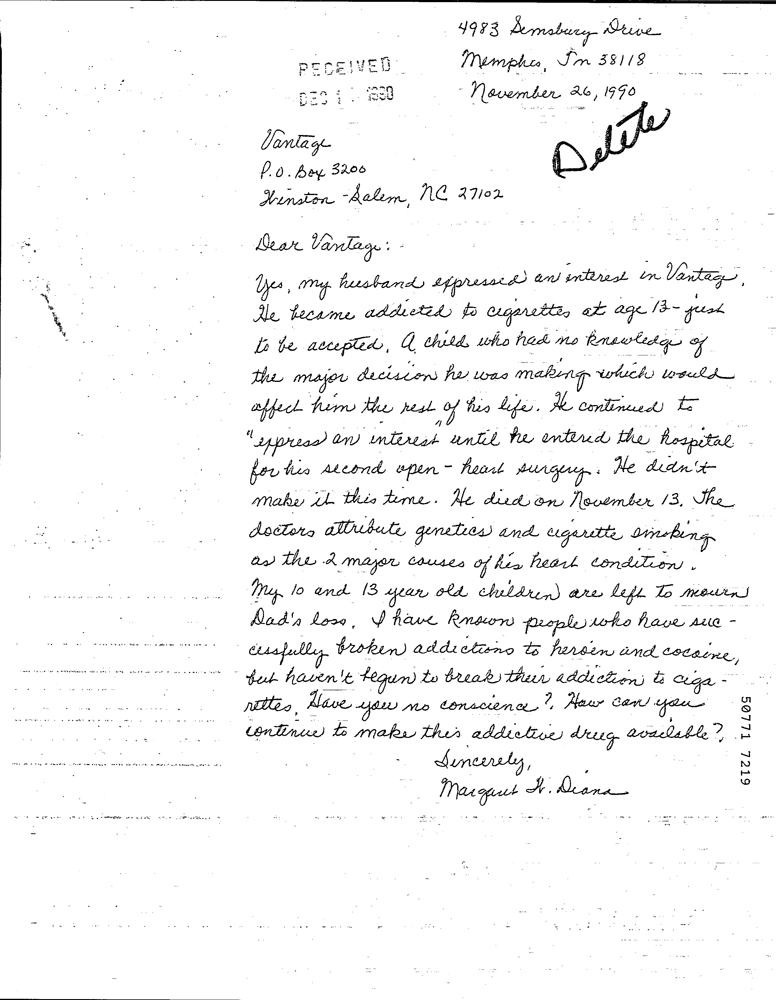 4983 Simsbury Drive
Memphis, Tn 38118
RECEIVED
DEC 1 1990
November 26, 1990
Delete
Vantage
P.O. Box 3200
Winston-Salem, NC 27102
Dear Vantage:
Yes, my husband expressed an interest in Vantage.
He became addicted to cigarettes at age 13 - just
to be accepted. A child who had no knowledge of
the major decision he was making which would
affect him the rest of his life. He continued to
"express an interest" until he entered the hospital
for his second open-heart surgery. He didn't
make it this time. He died on November 13. The
doctors attribute genetics and cigarette smoking
as the 2 major causes of his heart condition.
My 10 and 13 year old children are left to mourn
Dad's loss. I have known people who have suc-
cessfully broken addictions to heroin and cocaine,
but haven't begun to break their addiction to ciga-
rettes. Have you no conscience? How can you
continue to make this addictive drug available?
Sincerely,
Margaret H. Diana
50771 7219